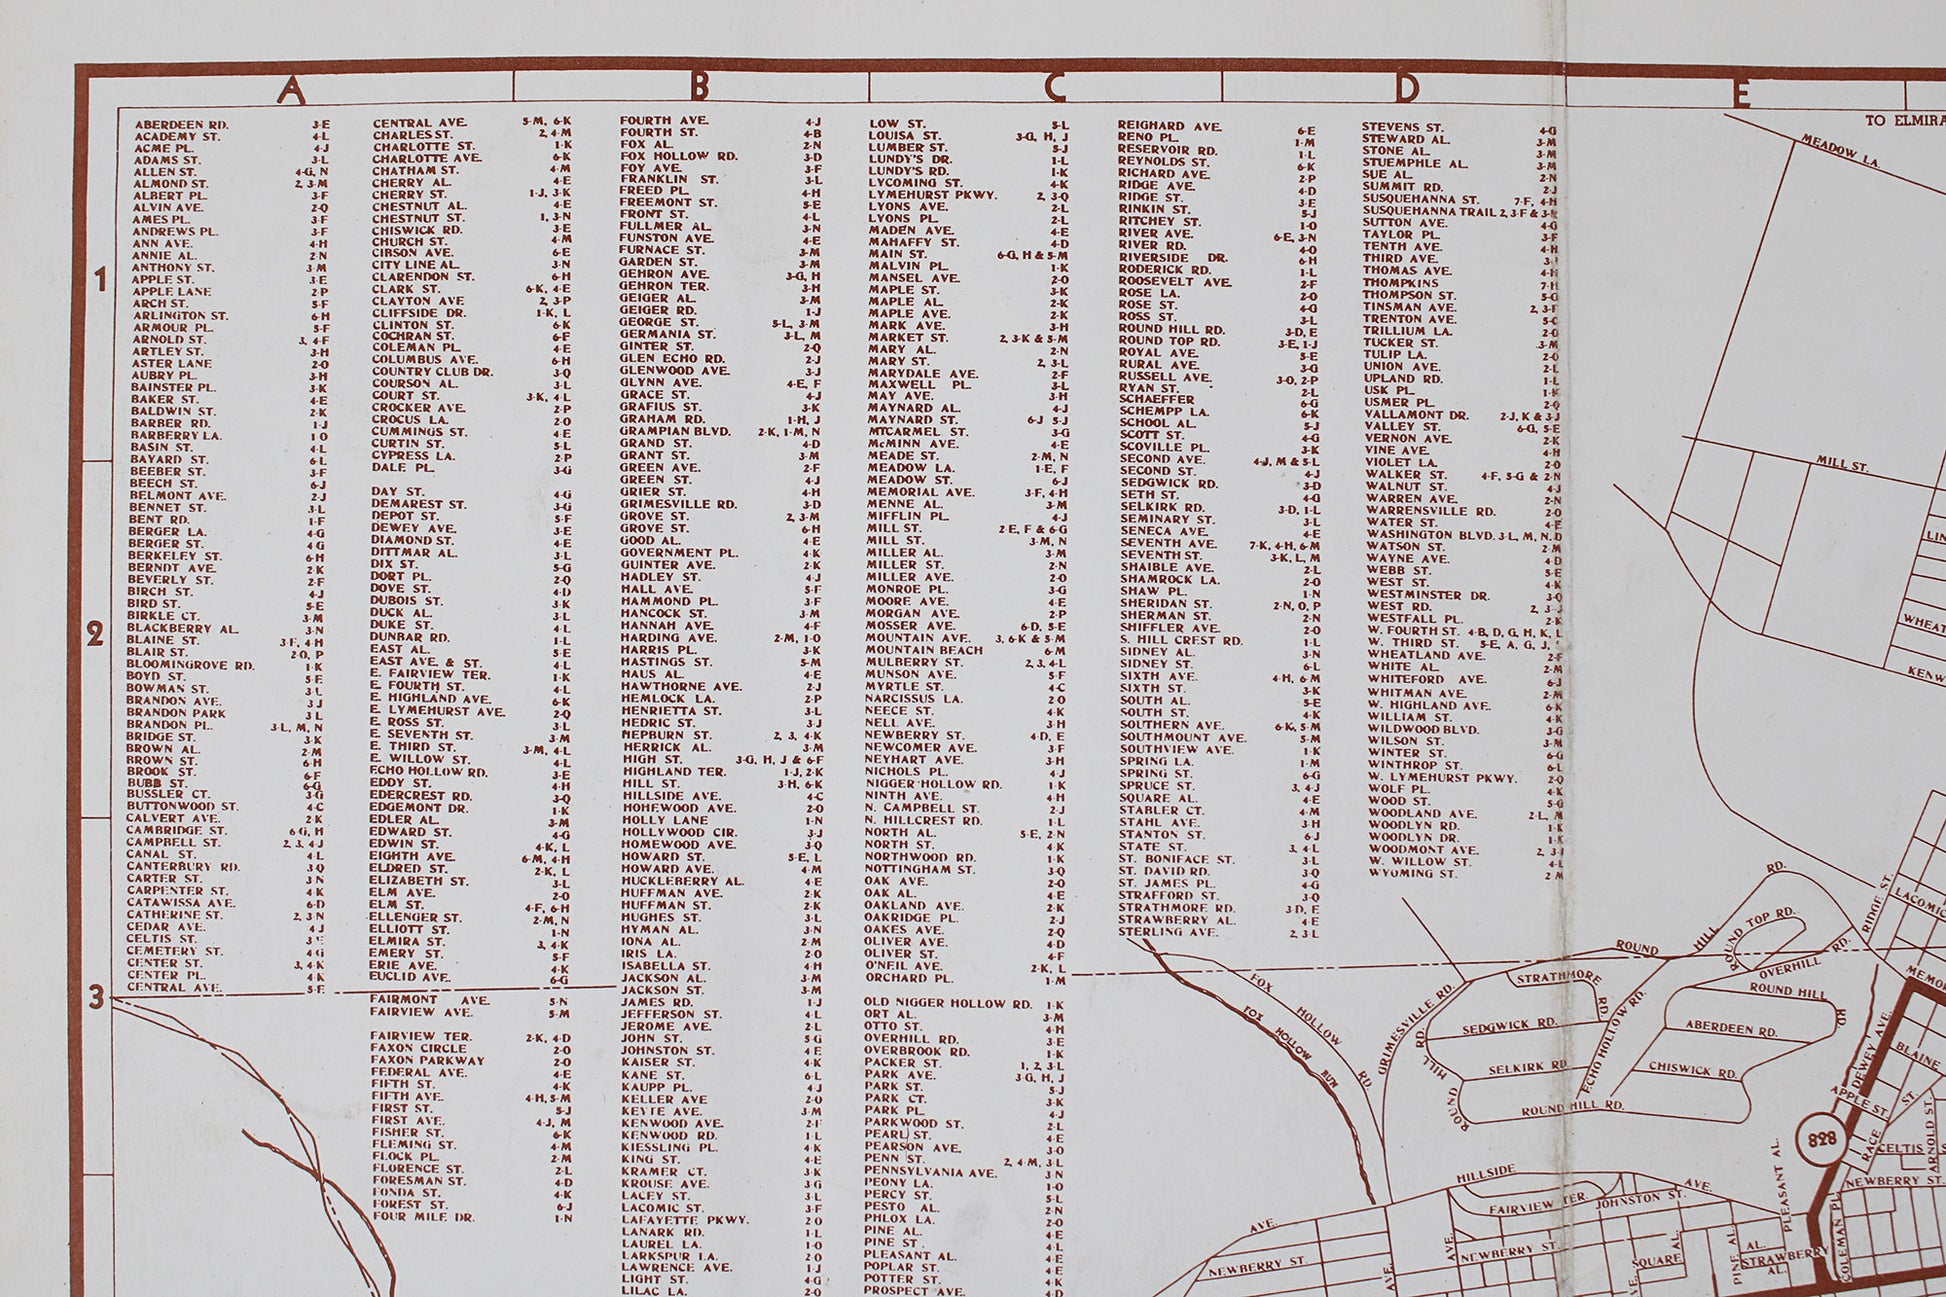 A B C D E
1
2
3
ABERDEEN RD. 3-E
ACADEMY ST. 4-L
ACME PL. 4-J
ADAMS ST. 3-L
ALLEN ST. 4-G, N
ALMOND ST. 2, 3-M
ALBERT PL. 3-F
ALVIN AVE. 2-Q
AMES PL. 3-F
ANDREWS PL. 3-F
ANN AVE. 4-H
ANNIE AL. 2-N
ANTHONY ST. 3-M
APPLE ST. 3-E
APPLE LANE 2-P
ARCH ST. 5-F
ARLINGTON ST. 6-H
ARMOUR PL. 5-F
ARNOLD ST. 3, 4-F
ARTLEY ST. 3-H
ASTER LANE 2-O
AUBRY PL. 3-H
BAINSTER PL. 3-K
BAKER ST. 4-E
BALDWIN ST. 2-K
BARBER RD. 1-J
BARBERRY LA. 1-O
BASIN ST. 4-L
BAYARD ST. 6-L
BEEBER ST. 3-F
BEECH ST. 6-J
BELMONT AVE. 2-J
BENNET ST. 3-L
BENT RD. 1-F
BERGER LA. 4-G
BERGER ST. 4-G
BERKELEY ST. 6-H
BERNDT AVE. 2-K
BEVERLY ST. 2-F
BIRCH ST. 4-J
BIRD ST. 5-E
BIRKLE CT. 3-M
BLACKBERRY AL. 3-N
BLAINE ST. 3-F, 4-H
BLAIR ST. 2-O, P
BLOOMINGROVE RD. 1-K
BOYD ST. 5-E
BOWMAN ST. 3-L
BRANDON AVE. 3-J
BRANDON PARK 3-L
BRANDON PL. 3-L, M, N
BRIDGE ST. 3-K
BROWN AL. 2-M
BROWN ST. 6-H
BROOK ST. 6-F
BUBB ST. 6-G
BUSSLER CT. 3-G
BUTTONWOOD ST. 4-C
CALVERT AVE. 2-K
CAMBRIDGE ST. 6-G, H
CAMPBELL ST. 2, 3, 4-J
CANAL ST. 4-L
CANTERBURY RD. 3-Q
CARTER ST. 3-N
CARPENTER ST. 4-K
CATAWISSA AVE. 6-D
CATHERINE ST. 2, 3-N
CEDAR AVE. 4-J
CELTIS ST.
CEMETERY ST. 4-G
CENTER ST. 3, 4-K
CENTER PL. 4-K
CENTRAL AVE. 5-E
CENTRAL AVE. 5-M, 6-K
CHARLES ST. 2, 4-M
CHARLOTTE ST. 1-K
CHARLOTTE AVE. 6-K
CHATHAM ST. 4-M
CHERRY AL. 4-E
CHERRY ST. 1-J, 3-K
CHESTNUT AL. 4-E
CHESTNUT ST. 1, 3-N
CHISWICK RD. 3-E
CHURCH ST. 4-M
CIBSON AVE. 6-E
CITY LINE AL. 3-N
CLARENDON ST. 6-H
CLARK ST. 6-K, 4-E
CLAYTON AVE 2, 3-P
CLIFFSIDE DR. 1-K, L
CLINTON ST. 6-K
COCHRAN ST. 6-F
COLEMAN PL. 4-E
COLUMBUS AVE. 6-H
COUNTRY CLUB DR. 3-Q
COURSON AL. 3-L
COURT ST. 3-K, 4-L
CROCKER AVE. 2-P
CROCUS LA. 2-O
CUMMINGS ST. 4-E
CURTIN ST. 5-L
CYPRESS LA. 2-P
DALE PL. 3-G
DAY ST. 4-G
DEMAREST ST. 3-G
DEPOT ST. 5-F
DEWEY AVE. 3-E
DIAMOND ST. 4-E
DITTMAR AL. 3-L
DIX ST. 5-G
DORT PL. 2-Q
DOVE ST. 4-D
DUBOIS ST. 3-K
DUCK AL. 3-L
DUKE ST. 4-L
DUNBAR RD. 1-L
EAST AL. 5-E
EAST AVE. & ST. 4-L
E. FAIRVIEW TER. 1-K
E. FOURTH ST. 4-L
E. HIGHLAND AVE. 6-K
E. LYMEHURST AVE. 2-Q
E. ROSS ST. 3-L
E. SEVENTH ST. 3-M
E. THIRD ST. 3-M, 4-L
E. WILLOW ST. 4-L
ECHO HOLLOW RD. 3-E
EDDY ST. 4-H
EDERCREST RD. 3-Q
EDGEMONT DR. 1-K
EDLER AL. 3-M
EDWARD ST. 4-G
EDWIN ST. 4-K, L
EIGHTH AVE. 6-M, 4-H
ELDRED ST. 2-K, L
ELIZABETH ST. 3-L
ELM AVE. 2-O
ELM ST. 4-F, 6-H
ELLENGER ST. 2-M, N
ELLIOTT ST. 1-N
ELMIRA ST. 3, 4-K
EMERY ST. 5-F
ERIE AVE. 4-K
EUCLID AVE. 6-G
FAIRMONT AVE. 5-N
FAIRVIEW AVE. 5-M
FAIRVIEW TER. 2-K, 4-D
FAXON CIRCLE 2-O
FAXON PARKWAY 2-O
FEDERAL AVE. 4-E
FIFTH ST. 4-K
FIFTH AVE. 4-H, 5-M
FIRST ST. 5-J
FIRST AVE. 4-J, M
FISHER ST. 6-K
FLEMING ST. 4-M
FLOCK PL. 2-M
FLORENCE ST. 2-L
FORESMAN ST. 4-D
FONDA ST. 4-K
FOREST ST. 6-J
FOUR MILE DR. 1-N
FOURTH AVE. 4-J
FOURTH ST. 4-B
FOX AL. 2-N
FOX HOLLOW RD. 3-D
FOY AVE. 3-F
FRANKLIN ST. 3-L
FREED PL. 4-H
FREEMONT ST. 5-E
FRONT ST. 4-L
FULLMER AL. 3-N
FUNSTON AVE. 4-E
FURNACE ST. 3-M
GARDEN ST. 3-M
GEHRON AVE. 3-G, H
GEHRON TER. 3-H
GEIGER AL. 3-M
GEIGER RD. 1-J
GEORGE ST. 5-L, 3-M
GERMANIA ST. 3-L, M
GINTER ST. 2-Q
GLEN ECHO RD. 2-J
GLENWOOD AVE. 3-J
GLYNN AVE. 4-E, F
GRACE ST. 4-J
GRAFIUS ST. 3-K
GRAHAM RD. 1-H, J
GRAMPIAN BLVD. 2-K, 1-M, N
GRAND ST. 4-D
GRANT ST. 3-M
GREEN AVE. 2-F
GREEN ST. 4-J
GRIER ST. 4-H
GRIMESVILLE RD. 3-D
GROVE ST. 2, 3-M
GROVE ST. 6-H
GOOD AL. 4-E
GOVERNMENT PL. 4-K
GUINTER AVE. 2-K
HADLEY ST. 4-J
HALL AVE. 5-F
HAMMOND PL. 3-F
HANCOCK ST. 3-M
HANNAH AVE. 4-F
HARDING AVE. 2-M, 1-O
HARRIS PL. 3-K
HASTINGS ST. 5-M
HAUS AL. 4-E
HAWTHORNE AVE. 2-J
HEMLOCK LA. 2-P
HENRIETTA ST. 3-L
HEDRIC ST. 3-J
HEPBURN ST. 2, 3, 4-K
HERRICK AL. 3-M
HIGH ST. 3-G, H, J & 6-F
HIGHLAND TER. 1-J, 2-K
HILL ST. 3-H, 6-K
HILLSIDE AVE. 4-C
HOHEWOOD AVE. 2-O
HOLLY LANE 1-N
HOLLYWOOD CIR. 3-J
HOMEWOOD AVE. 3-Q
HOWARD ST. 5-E, L
HOWARD AVE. 4-M
HUCKLEBERRY AL. 4-E
HUFFMAN AVE. 2-K
HUFFMAN ST. 2-K
HUGHES ST. 3-L
HYMAN AL. 3-N
IONA AL. 2-M
IRIS LA. 2-O
ISABELLA ST. 4-H
JACKSON AL. 3-M
JACKSON ST. 3-M
JAMES RD. 1-J
JEFFERSON ST. 4-L
JEROME AVE. 2-L
JOHN ST. 5-G
JOHNSTON ST. 4-E
KAISER ST. 4-K
KANE ST. 6-L
KAUPP PL. 4-J
KELLER AVE 2-O
KEYTE AVE. 3-M
KENWOOD AVE. 2-F
KENWOOD RD. 1-L
KIESSLING PL. 4-K
KING ST. 4-E
KRAMER CT. 3-K
KROUSE AVE. 3-G
LACEY ST. 3-L
LACOMIC ST. 3-F
LAFAYETTE PKWY. 2-O
LANARK RD. 1-L
LAUREL LA. 1-O
LARKSPUR LA. 2-O
LAWRENCE AVE. 1-J
LIGHT ST. 4-G
LILAC LA. 2-O
LOW ST. 5-L
LOUISA ST. 3-G, H, J
LUMBER ST. 5-J
LUNDY'S DR. 1-L
LUNDY'S RD. 1-K
LYCOMING ST. 4-K
LYMEHURST PKWY. 2, 3-Q
LYONS AVE. 2-L
LYONS PL. 2-L
MADEN AVE. 4-E
MAHAFFY ST. 4-D
MAIN ST. 6-G, H & 5-M
MALVIN PL. 1-K
MANSEL AVE. 2-O
MAPLE ST. 3-K
MAPLE AL. 2-K
MAPLE AVE. 2-K
MARK AVE. 3-H
MARKET ST. 2, 3-K & 5-M
MARY AL. 2-N
MARY ST. 2, 3-L
MARYDALE AVE. 2-F
MAXWELL PL. 3-L
MAY AVE. 3-H
MAYNARD AL. 4-J
MAYNARD ST. 6-J 5-J
MTCARMEL ST. 3-G
McMINN AVE. 4-E
MEADE ST. 2-M, N
MEADOW LA. 1-E, F
MEADOW ST. 6-J
MEMORIAL AVE. 3-F, 4-H
MENNE AL. 3-M
MIFFLIN PL. 4-J
MILL ST. 2-E, F & 6-G
MILL ST. 3-M, N
MILLER AL. 3-M
MILLER ST. 2-N
MILLER AVE. 2-O
MONROE PL. 3-G
MOORE AVE. 4-E
MORGAN AVE. 2-P
MOSSER AVE. 6-D, 5-E
MOUNTAIN AVE. 3, 6-K & 5-M
MOUNTAIN BEACH 6-M
MULBERRY ST. 2, 3, 4-L
MUNSON AVE. 5-F
MYRTLE ST. 4-C
NARCISSUS LA. 2-O
NEECE ST. 4-K
NELL AVE. 3-H
NEWBERRY ST. 4-D, E
NEWCOMER AVE. 3-F
NEYHART AVE. 3-H
NICHOLS PL. 4-J
NIGGER HOLLOW RD. 1-K
NINTH AVE. 4-H
N. CAMPBELL ST. 2-J
N. HILLCREST RD. 1-L
NORTH AL. 5-E, 2-N
NORTH ST. 4-K
NORTHWOOD RD. 1-K
NOTTINGHAM ST. 3-Q
OAK AVE. 2-O
OAK AL. 4-E
OAKLAND AVE. 2-K
OAKRIDGE PL. 2-J
OAKES AVE. 2-Q
OLIVER AVE. 4-D
OLIVER ST. 4-F
O'NEIL AVE. 2-K, L
ORCHARD PL. 1-M
OLD NIGGER HOLLOW RD. 1-K
ORT AL. 3-M
OTTO ST. 4-H
OVERHILL RD. 3-E
OVERBROOK RD. 1-K
PACKER ST. 1, 2, 3-L
PARK AVE. 3-G, H, J
PARK ST. 5-J
PARK CT. 3-K
PARK PL. 4-J
PARKWOOD ST. 2-L
PEARL ST. 4-E
PEARSON AVE. 3-O
PENN ST. 2, 4-M, 3-L
PENNSYLVANIA AVE. 3-N
PEONY LA. 1-O
PERCY ST. 5-L
PESTO AL. 2-N
PHLOX LA. 2-O
PINE AL. 4-E
PINE ST. 4-L
PLEASANT AL. 4-E
POPLAR ST. 4-E
POTTER ST. 4-K
PROSPECT AVE. 4-D
REIGHARD AVE. 6-E
RENO PL. 1-M
RESERVOIR RD. 1-L
REYNOLDS ST. 6-K
RICHARD AVE. 2-P
RIDGE AVE. 4-D
RIDGE ST. 3-E
RINKIN ST. 5-J
RITCHEY ST. 1-O
RIVER AVE. 6-E, 3-N
RIVER RD. 4-O
RIVERSIDE DR. 6-H
RODERICK RD. 1-L
ROOSEVELT AVE. 2-F
ROSE LA. 2-O
ROSE ST. 4-G
ROSS ST. 3-L
ROUND HILL RD. 3-D, E
ROUND TOP RD. 3-E, 1-J
ROYAL AVE. 5-E
RURAL AVE. 3-G
RUSSELL AVE. 3-O, 2-P
RYAN ST. 2-L
SCHAEFFER 6-G
SCHEMPP LA. 6-K
SCHOOL AL. 5-J
SCOTT ST. 4-G
SCOVILLE PL. 3-K
SECOND AVE. 4-J, M & 5-L
SECOND ST. 4-J
SEDGWICK RD. 3-D
SETH ST. 4-G
SELKIRK RD. 3-D, 1-L
SEMINARY ST. 3-L
SENECA AVE. 4-E
SEVENTH AVE. 7-K, 4-H, 6-M
SEVENTH ST. 3-K, L, M
SHAIBLE AVE. 2-L
SHAMROCK LA. 2-O
SHAW PL. 1-N
SHERIDAN ST. 2-N, O, P
SHERMAN ST. 2-N
SHIFFLER AVE. 2-O
S. HILL CREST RD. 1-L
SIDNEY AL. 3-N
SIDNEY ST. 6-L
SIXTH AVE. 4-H, 6-M
SIXTH ST. 3-K
SOUTH AL. 5-E
SOUTH ST. 4-K
SOUTHERN AVE. 6-K, 5-M
SOUTHMOUNT AVE. 5-M
SOUTHVIEW AVE. 1-K
SPRING LA. 1-M
SPRING ST. 6-G
SPRUCE ST. 3, 4-J
SQUARE AL. 4-E
STABLER CT. 4-M
STAHL AVE. 3-H
STANTON ST. 6-J
STATE ST. 3, 4-L
ST. BONIFACE ST. 3-L
ST. DAVID RD. 3-Q
ST. JAMES PL. 4-G
STRAFFORD ST. 3-Q
STRATHMORE RD. 3-D, E
STRAWBERRY AL. 4-E
STERLING AVE. 2, 3-L
STEVENS ST. 4-G
STEWARD AL. 3-M
STONE AL. 3-M
STUEMPHLE AL. 3-M
SUE AL. 2-N
SUMMIT RD. 2-J
SUSQUEHANNA ST. 7-F, 4-H
SUSQUEHANNA TRAIL 2, 3-F & 3-
SUTTON AVE. 4-G
TAYLOR PL. 3-F
TENTH AVE. 4-H
THIRD AVE.
THOMAS AVE. 4-H
THOMPKINS 7-H
THOMPSON ST. 5-G
TINSMAN AVE. 2, 3-F
TRENTON AVE. 5-C
TRILLIUM LA. 2-O
TUCKER ST. 3-M
TULIP LA. 2-O
UNION AVE. 2-L
UPLAND RD. 1-L
USK PL. 1-K
USMER PL. 2-Q
VALLAMONT DR. 2-J, K & 3-J
VALLEY ST. 6-G, 5-E
VERNON AVE. 2-K
VINE AVE. 4-H
VIOLET LA. 2-O
WALKER ST. 4-F, 5-G & 2-N
WALNUT ST. 4-J
WARREN AVE. 2-N
WARRENSVILLE RD. 2-O
WATER ST. 4-E
WASHINGTON BLVD. 3-L, M, N,
WATSON ST. 2-M
WAYNE AVE. 4-D
WEBB ST. 5-E
WEST ST. 4-K
WESTMINSTER DR. 3-Q
WEST RD. 2, 3-J
WESTFALL PL. 2-K
W. FOURTH ST. 4-B, D, G, H, K, L
W. THIRD ST. 5-E, A, G, J,
WHEATLAND AVE. 2-F
WHITE AL. 2-M
WHITEFORD AVE. 6-J
WHITMAN AVE. 2-M
W. HIGHLAND AVE. 6-K
WILLIAM ST. 4-K
WILDWOOD BLVD. 3-G
WILSON ST. 3-M
WINTER ST. 6-G
WINTHROP ST. 6-L
W. LYMEHURST PKWY. 2-Q
WOLF PL. 4-K
WOOD ST. 5-G
WOODLAND AVE. 2-L, M
WOODLYN RD. 1-K
WOODLYN DR. 1-K
WOODMONT AVE. 2,
W. WILLOW ST. 4-L
WYOMING ST. 2-M
TO ELMIRA
MEADOW LA.
MILL ST.
LIN
WHEAT
KENW
RIDGE ST.
LACOMIC
MEMO
ROUND HILL RD.
ROUND TOP RD.
OVERHILL RD.
STRATHMORE RD.
ROUND HILL RD.
FOX HOLLOW RD.
FOX HOLLOW RUN
GRIMESVILLE RD.
SEDGWICK RD.
ECHO HOLLOW RD.
ABERDEEN RD.
SELKIRK RD.
CHISWICK RD.
ROUND HILL RD.
ROUND HILL RD.
DEWEY AVE.
BLAINE
APPLE ST.
828
RACE ST.
CELTIS S
ARNOLD ST.
NEWBERRY ST.
HILLSIDE AVE.
FAIRVIEW TER.
JOHNSTON ST.
PLEASANT AL.
AVE.
NEWBERRY ST.
AVE.
AVE.
NEWBERRY ST.
SQUARE AL.
PINE AL.
AL.
STRAWBERRY AL.
COLEMAN PL.